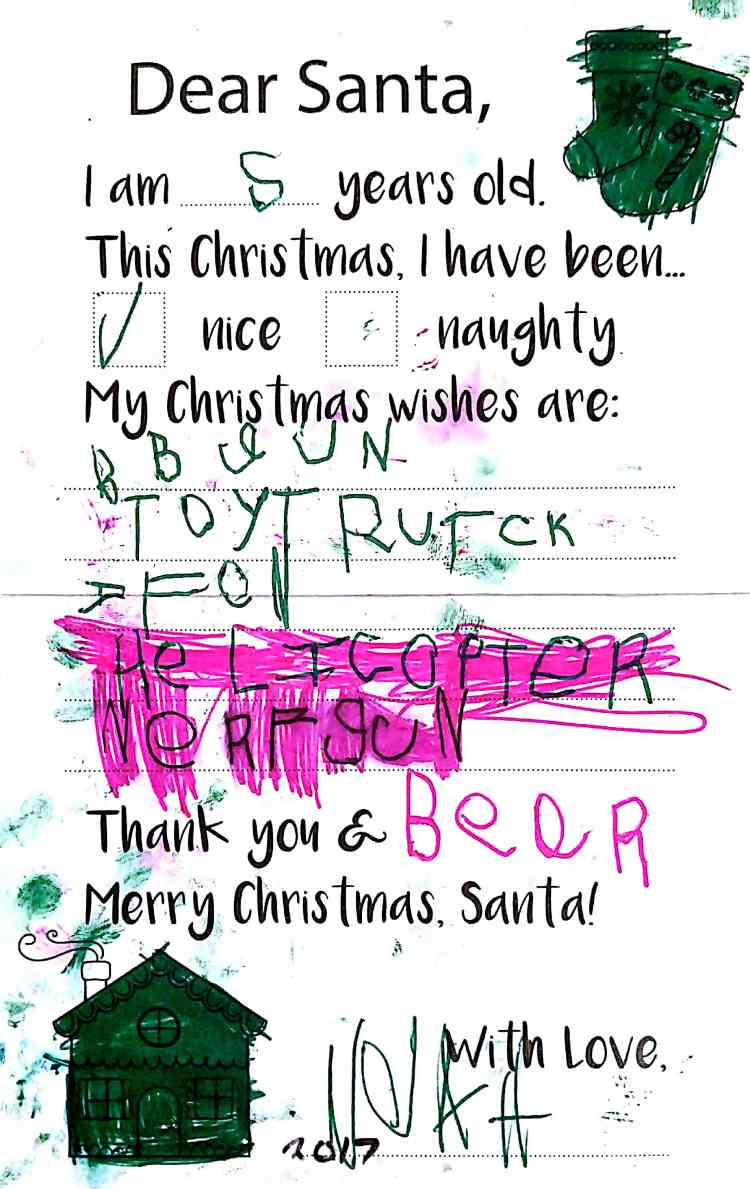 Dear Santa,
I am 5 years old.
This Christmas, I have been...
✓ nice naughty
My Christmas wishes are:
BB GUN
TOYT RUTCK
A FON
HeLICOPTeR
NeRF GUN
Thank you & BeeR
Merry Christmas, Santa!
With Love,
NOAH
2017